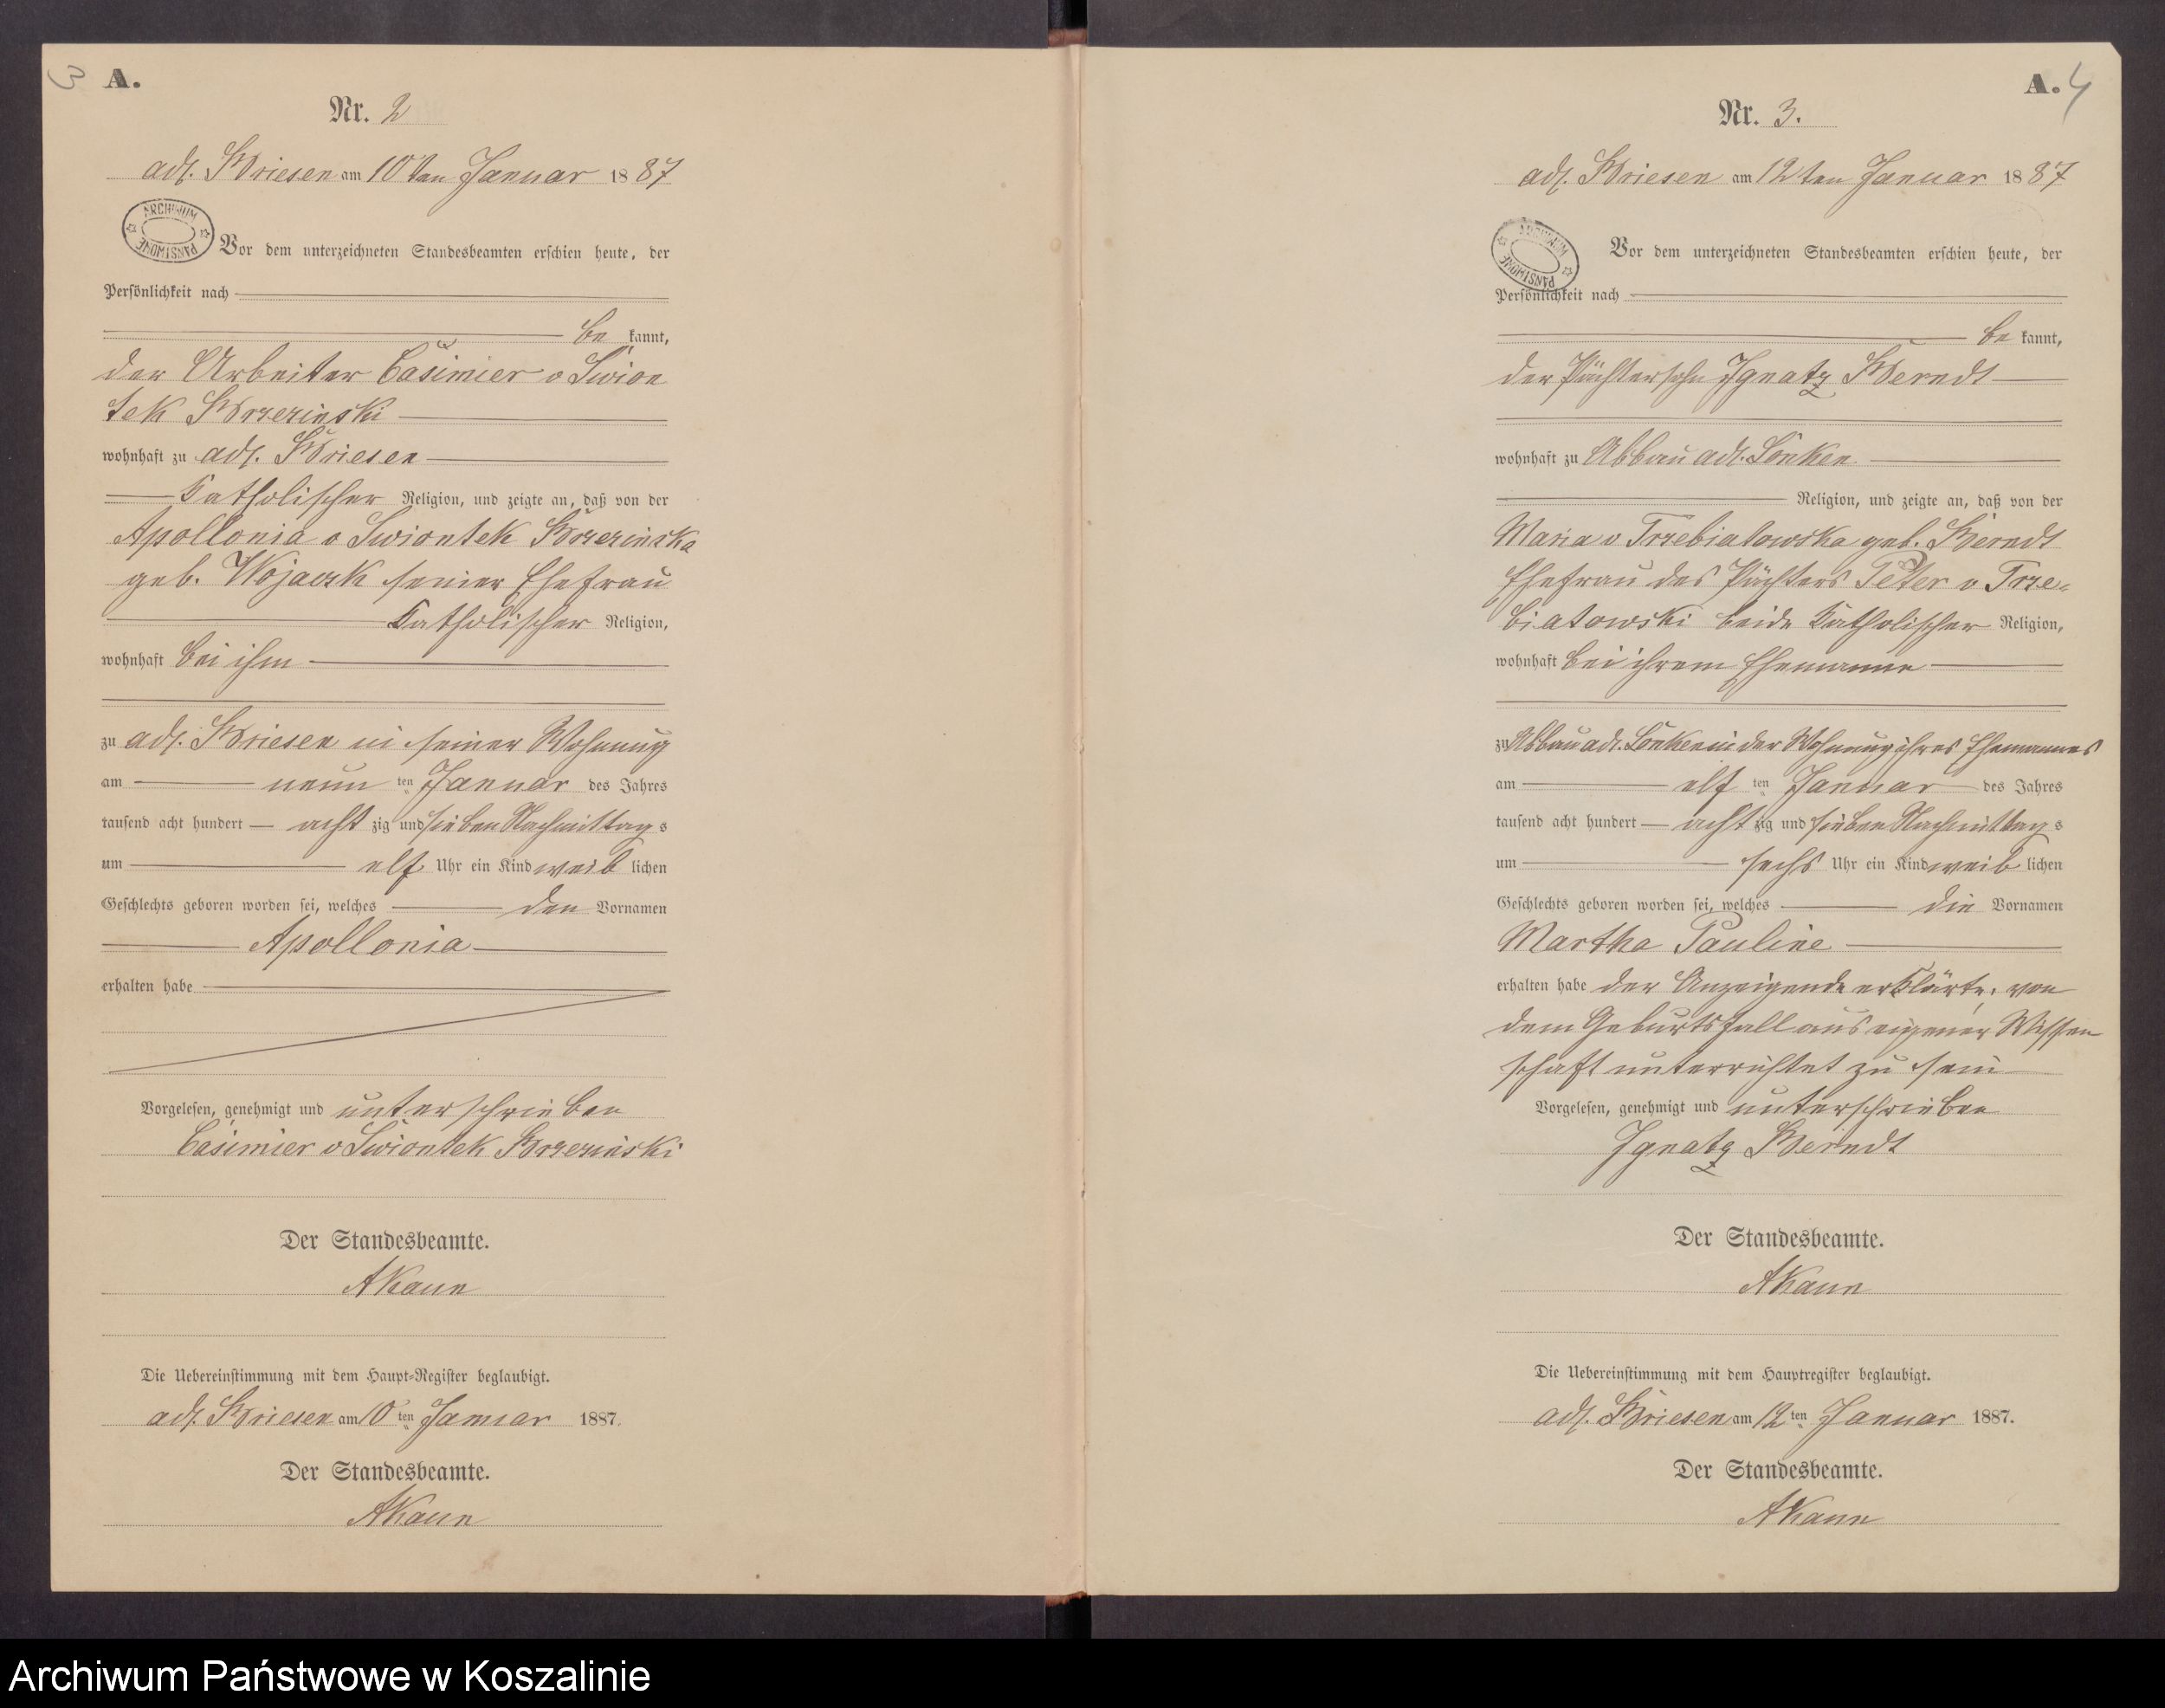 3 A.
Nr. 2
adl. Briesen am 10ten Januar 1887
ARCHIWUM PAŃSTWOWE
Vor dem unterzeichneten Standesbeamten erschien heute, der
Persönlichkeit nach
be kannt,
der Arbeiter Casimier v Swion
tek Brzezinski
wohnhaft zu adl. Briesen
Katholischer Religion, und zeigte an, daß von der
Apollonia v Swiontek Brzezinska
geb. Wojack seiner Ehefrau
Katholischer Religion,
wohnhaft bei ihm
zu adl. Briesen in seiner Wohnung
am neun ten Januar des Jahres
tausend acht hundert acht zig und sieben Nachmittags
um elf Uhr ein Kind weib lichen
Geschlechts geboren worden sei, welches den Vornamen
Apollonia
erhalten habe
Vorgelesen, genehmigt und unterschrieben
Casimier v Swiontek Brzezinski
Der Standesbeamte.
AKaun
Die Uebereinstimmung mit dem Haupt-Register beglaubigt.
adl. Briesen am 10ten Januar 1887.
Der Standesbeamte.
AKaun
A. 4
Nr. 3.
adl. Briesen am 12ten Januar 1887
ARCHIWUM PAŃSTWOWE
Vor dem unterzeichneten Standesbeamten erschien heute, der
Persönlichkeit nach
be kannt,
der Pächtersohn Ignatz Berndt
wohnhaft zu Abbau adl. Lonken
Religion, und zeigte an, daß von der
Maria v Trzebiatowska geb. Berndt
Ehefrau des Pächters Peter v Trze-
biatowski beide Katholischer Religion,
wohnhaft bei ihrem Ehemanne
zu Abbau adl. Lonken in der Wohnung ihres Ehemannes
am elf ten Januar des Jahres
tausend acht hundert acht zig und sieben Nachmittags
um sechs Uhr ein Kind weib lichen
Geschlechts geboren worden sei, welches die Vornamen
Martha Pauline
erhalten habe der Anzeigende erklärte, von
dem Geburtsfall aus eigener Wissen
schaft unterrichtet zu sein
Vorgelesen, genehmigt und unterschrieben
Ignatz Berndt
Der Standesbeamte.
AKaun
Die Uebereinstimmung mit dem Hauptregister beglaubigt.
adl. Briesen am 12ten Januar 1887.
Der Standesbeamte.
AKaun
Archiwum Państwowe w Koszalinie